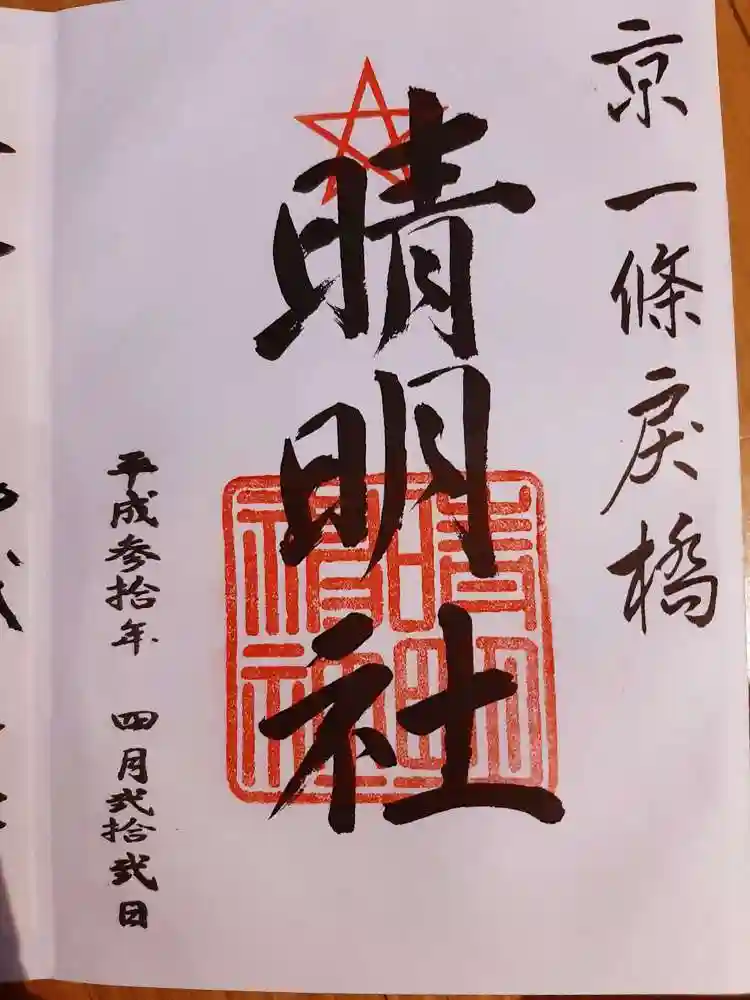 京一條戻橋
晴明社
平成参拾年 四月弐拾弐日